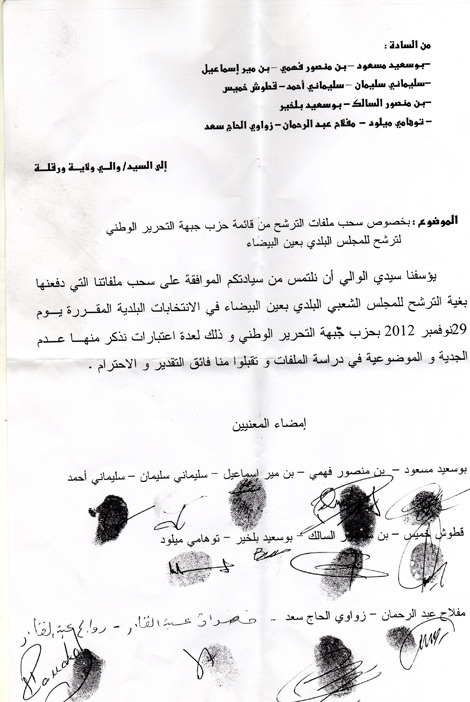 من السادة :
-بوسعيد مسعود – بن منصور فهمي – بن مير إسماعيل
-سليماني سليمان – سليماني أحمد – قطوش خميس
-بن منصور السالك – بوسعيد بلخير
- توهامي ميلود – مفلاح عبد الرحمان – زواوي الحاج سعد
إلى السيد/ والي ولاية ورقلة
الموضوع : بخصوص سحب ملفات الترشح من قائمة حزب جبهة التحرير الوطني
لترشح للمجلس البلدي بعين البيضاء
يؤسفنا سيدي الوالي أن نلتمس من سيادتكم الموافقة على سحب ملفاتنا التي دفعنها
بغية الترشح للمجلس الشعبي البلدي بعين البيضاء في الانتخابات البلدية المقررة يوم
29نوفمبر 2012 بحزب جبهة التحرير الوطني و ذلك لعدة اعتبارات نذكر منها عدم
الجدية و الموضوعية في دراسة الملفات و تقبلوا منا فائق التقدير و الاحترام .
إمضاء المعنيين
بوسعيد مسعود – بن منصور فهمي – بن مير إسماعيل – سليماني سليمان – سليماني أحمد
قطوش خميس – بن السالك – بوسعيد بلخير – توهامي ميلود
مفلاح عبد الرحمان – زواوي الحاج سعد - عبد القادر - عبد القادر